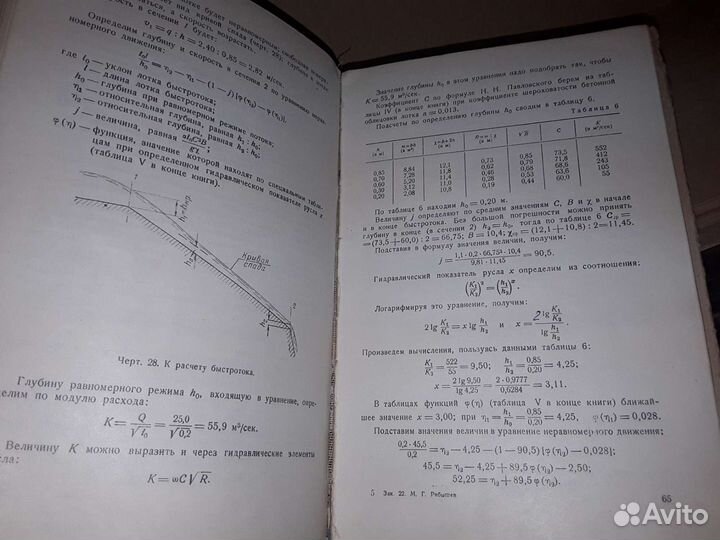 лотке будет неравномерным, свободная поверх-
v₁ = q : h = 2,40 : 0,85 = 2,82 м/сек.
Определим глубину и скорость в сечении 2 по уравнению нерав-
номерного движения:
где i₀ — уклон лотка быстротока;
l — длина лотка быстротока;
h₀ — глубина при равномерном режиме потока;
η₁ — относительная глубина, равная h₁ : h₀;
η₂ — относительная глубина, равная h₂ : h₀;
j — величина, равная
φ (η) — функция, значение которой находят по специальным табли-
цам при определенном гидравлическом показателе русла x
(таблица V в конце книги).
h₁ = hкр
Кривая
спада
h₀
h₂
1
2
Черт. 28. К расчету быстротока.
Глубину равномерного режима h₀, входящую в уравнение, опре-
делим по модулю расхода:
K = Q/√i₀ = 25,0/√0,2 = 55,9 м³/сек.
Величину K можно выразить и через гидравлические элементы
K = ωC√R.
Значение глубины h₀ в этом уравнении надо подобрать так, чтобы
K = 55,9 м³/сек.
Коэффициент C по формуле Н. Н. Павловского берем из таб-
лицы IV (в конце книги) при коэффициенте шероховатости бетонной
облицовки лотка n = 0,013.
Подсчеты по определению глубины h₀ сводим в таблицу 6.
Таблица 6
h (в м) ω = bh χ = b + 2h (в м) √R C K (м³/сек)
0,85 8,84 12,1 0,73 0,85 73,5 552
0,70 7,28 11,8 0,62 0,79 71,8 412
0,50 5,20 11,4 0,46 0,68 68,6 243
0,30 3,12 11,0 0,28 0,53 63,6 105
0,20 2,08 10,8 0,19 0,44 60,0 55
По таблице 6 находим h₀ = 0,20 м.
Величину j определяют по средним значениям C, B и χ в начале
и в конце быстротока. Без большой погрешности можно принять
глубину в конце (в сечении 2) h₂ = h₀, тогда по таблице 6 Cср =
= (73,5 + 60,0) : 2 = 66,75; B = 10,4; χср = (12,1 + 10,8) : 2 = 11,45.
Подставив в формулу значения величин, получим:
j = 1,1 · 0,2 · 66,75² · 10,4 / 9,81 · 11,45 = 90,5.
Гидравлический показатель русла x определим из соотношения:
(K₁/K₂)² = (h₁/h₂)ˣ.
Логарифмируя это уравнение, получим:
2 lg K₁/K₂ = x lg h₁/h₂ и x = 2 lg K₁/K₂ / lg h₁/h₂.
Произведем вычисления, пользуясь данными таблицы 6:
K₁/K₂ = 522/55 = 9,50; h₁/h₂ = 0,85/0,20 = 4,25;
x = 2 lg 9,50 / lg 4,25 = 2 · 0,9777 / 0,6284 = 3,11.
В таблицах функций φ (η) (таблица V в конце книги) ближай-
шее значение x = 3,00; при η₁ = h₁/h₀ = 0,85/0,20 = 4,25, φ(η₁) = 0,028.
Подставим значения величин в уравнение неравномерного движения:
0,2 · 45,5 / 0,2 = η₂ — 4,25 — (1 — 90,5) [φ (η₂) — 0,028];
45,5 = η₂ — 4,25 + 89,5 φ (η₂) — 2,50;
52,25 = η₂ + 89,5 φ (η₂).
5 Зак. 22. М. Г. Рябышев
65
Avito